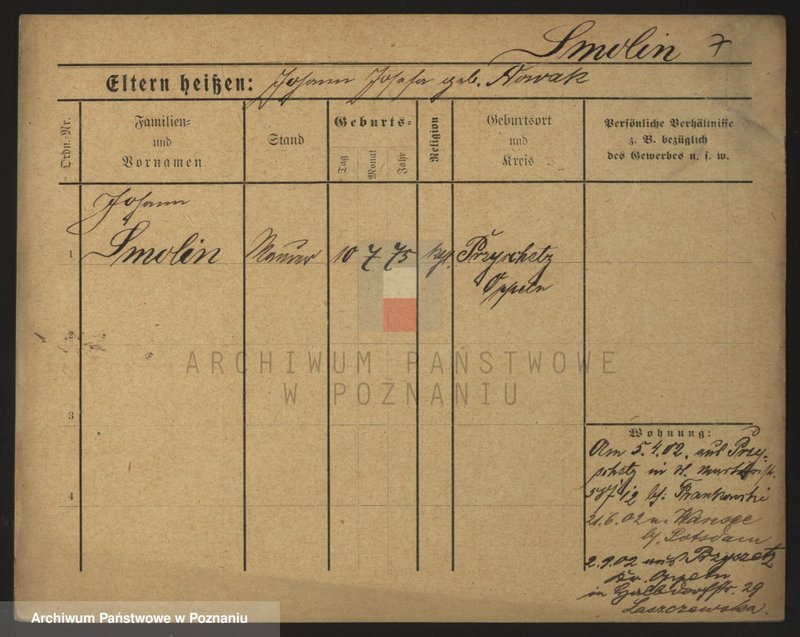 Smolin 7
Eltern heißen: Johann Josefa geb. Nowak
Ordn.-Nr.
Familien-
und
Vornamen
Stand
Geburts-
Tag
Monat
Jahr
Religion
Geburtsort
und
Kreis
Persönliche Verhältnisse
z. B. bezüglich
des Gewerbes u. s. w.
Johann
1 Smolin Maurer 10 7 75 Przyschetz
Oppeln
2
3
4
ARCHIWUM PAŃSTWOWE
W POZNANIU
Wohnung:
Am 5.4.02. aus Przy-
schetz in
bei Frankowski
02 n. Wansee
b. Potsdam
2.9.02 aus Przyszetz
Kr. Oppeln
in 29
Laszczewska.
Archiwum Państwowe w Poznaniu